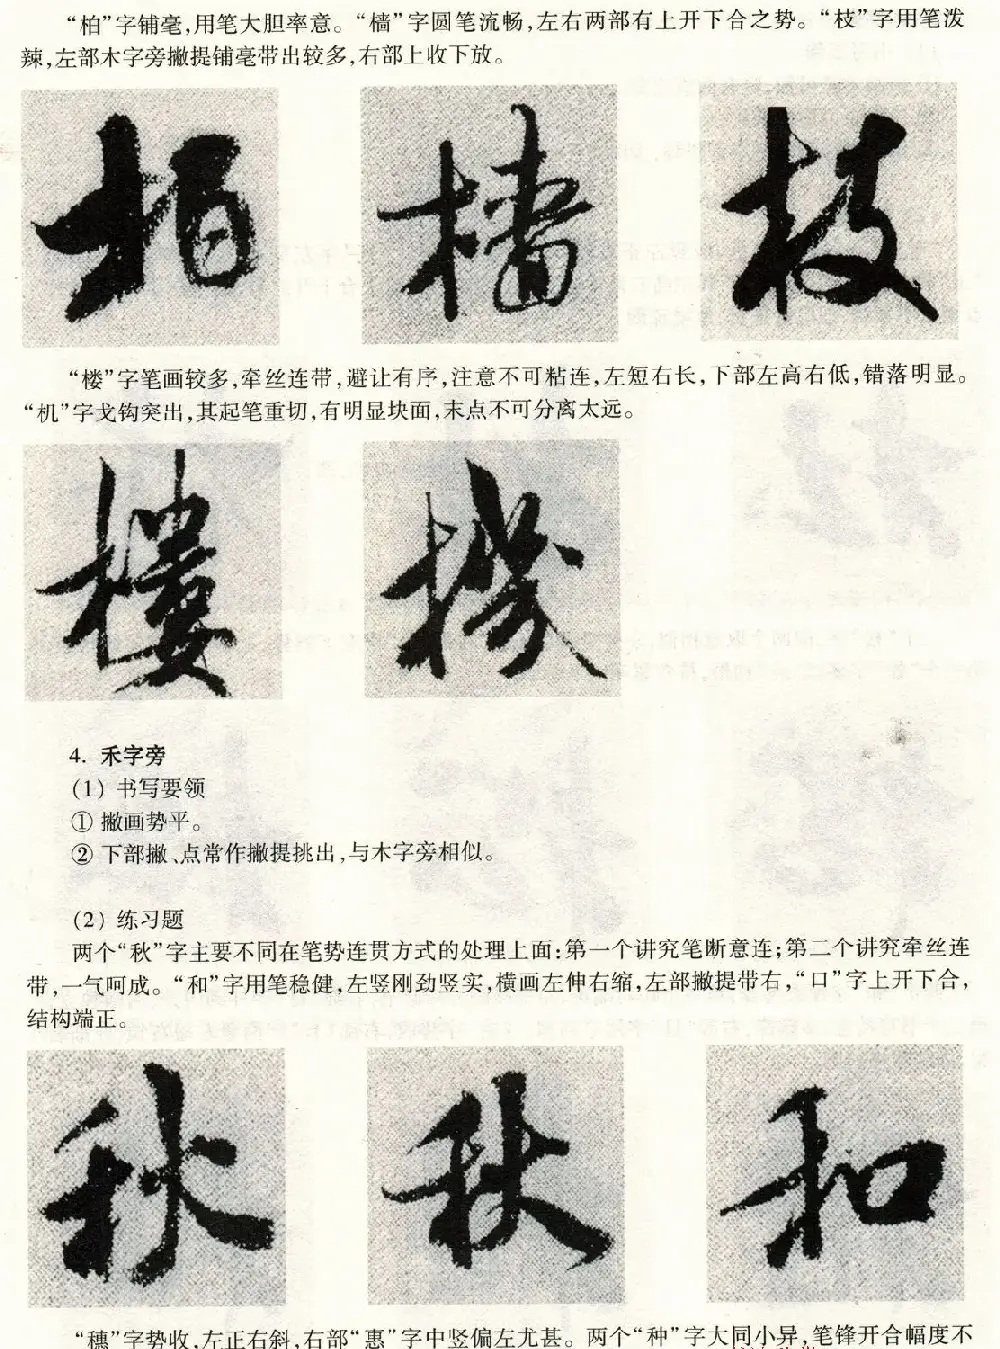 “柏”字铺毫,用笔大胆率意。“樯”字圆笔流畅,左右两部有上开下合之势。“枝”字用笔泼
辣,左部木字旁撇提铺毫带出较多,右部上收下放。
柏 檣 枝
“楼”字笔画较多,牵丝连带,避让有序,注意不可粘连,左短右长,下部左高右低,错落明显。
“机”字戈钩突出,其起笔重切,有明显块面,末点不可分离太远。
樓 機
4. 禾字旁
(1) 书写要领
① 撇画势平。
② 下部撇、点常作撇提挑出,与木字旁相似。
(2) 练习题
两个“秋”字主要不同在笔势连贯方式的处理上面:第一个讲究笔断意连;第二个讲究牵丝连
带,一气呵成。“和”字用笔稳健,左竖刚劲竖实,横画左伸右缩,左部撇提带右,“口”字上开下合,
结构端正。
秋 秋 和
“穗”字势收,左正右斜,右部“惠”字中竖偏左尤甚。两个“种”字大同小异,笔锋开合幅度不